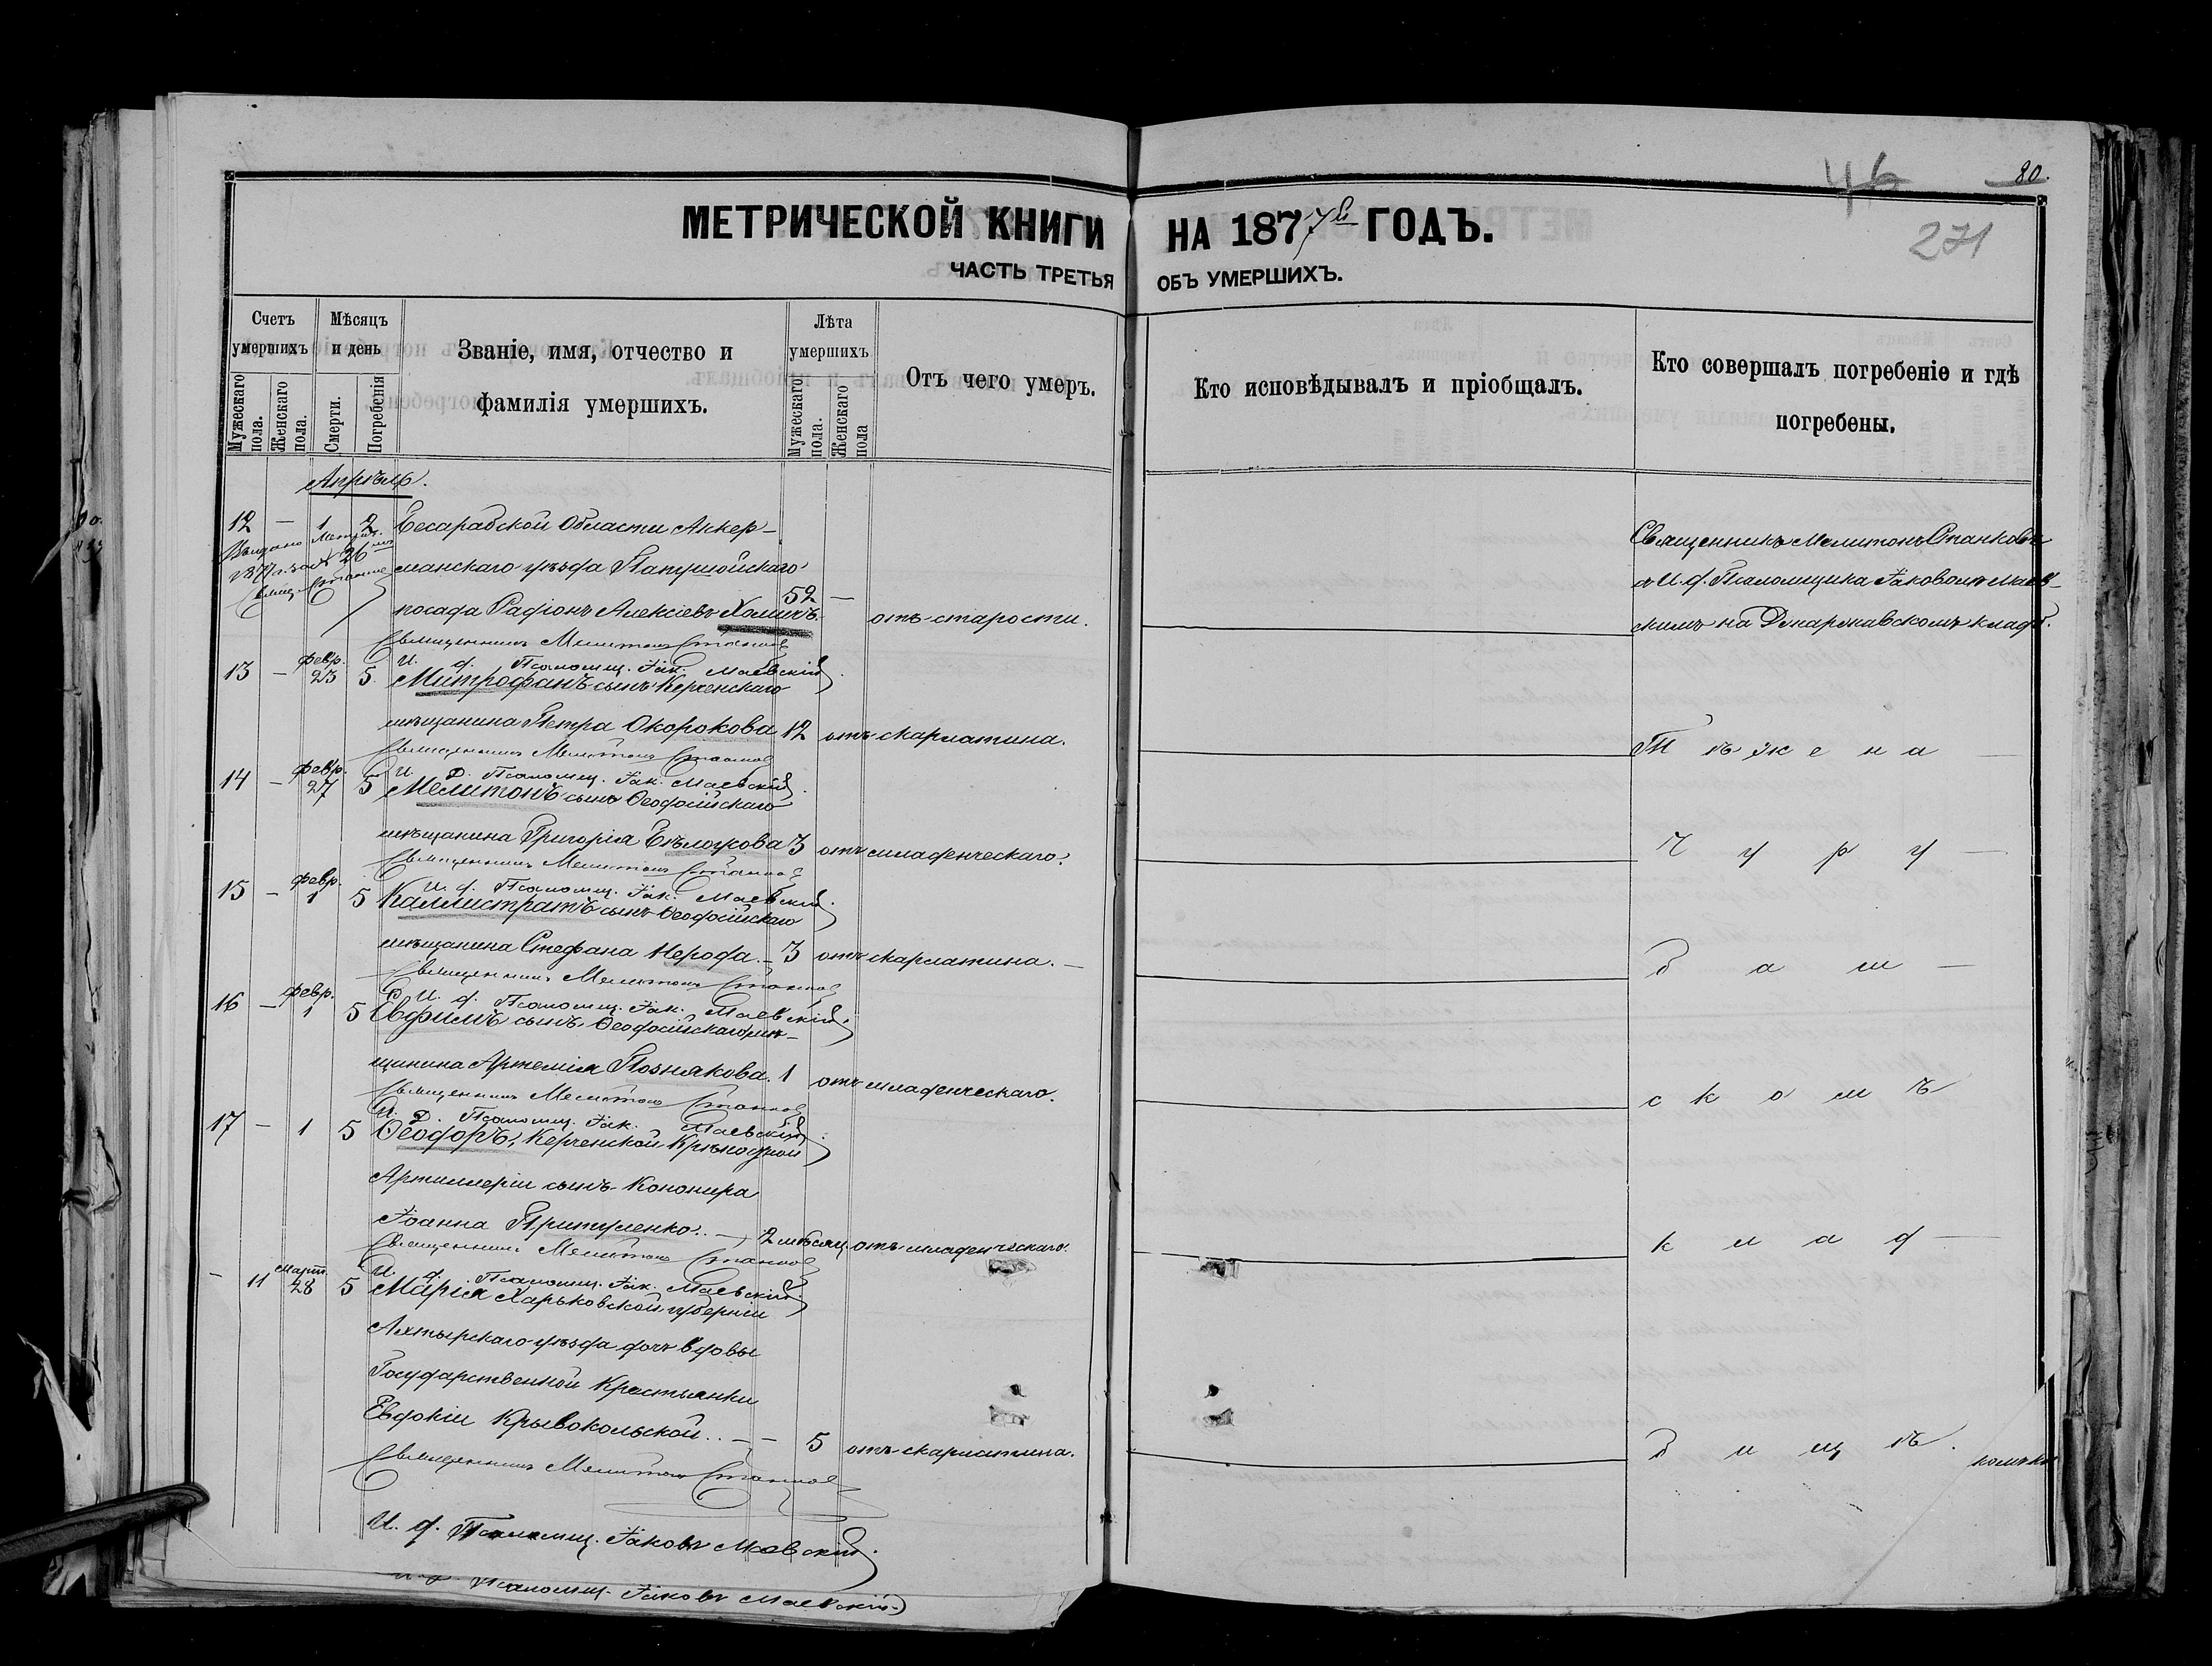 46
80.
271
МЕТРИЧЕСКОЙ КНИГИ НА 1877й ГОДЪ.
ЧАСТЬ ТРЕТЬЯ ОБЪ УМЕРШИХЪ.
Счетъ умершихъ
Мужескаго пола.
Женскаго пола.
Мѣсяцъ и день
Смерти.
Погребенія
Званіе, имя, отчество и
фамилія умершихъ.
Лѣта умершихъ
Мужескаго пола.
Женскаго пола
Отъ чего умеръ.
Кто исповѣдывалъ и пріобщалъ.
Кто совершалъ погребеніе и гдѣ
погребены.
Апрѣль.
12 — 1 2 Бесарабской Области Аккер-
Выдано Метрич.
манскаго уѣзда
посада Радіонъ Алексіевъ Холичъ. 52 — отъ старости.
Священникъ Мелитонъ Станковъ
и И. д. Псаломщика Іаковомъ Маев-
скимъ на Джаржавскомъ кладб.
Священникъ Мелитонъ Станковъ
И. д. Псаломщ. Іак. Маевскій.
13 — февр. 23 5. Митрофанъ сынъ Керченскаго
мѣщанина Петра Окорокова 12 отъ скарлатина.
Т ѣ ж е н а —
Священникъ Мелитонъ Станковъ
И. Д. Псаломщ. Іак. Маевскій.
14 — февр. 27 5 Мелитонъ сынъ Ѳеодосійскаго
мѣщанина Григорія Бѣлоусова 3 отъ младенческаго.
Священникъ Мелитонъ Станковъ
И. д. Псаломщ. Іак. Маевскій.
15 — февр. 1 5 Каллистратъ сынъ Ѳеодосійскаго
мѣщанина Стефана Нерода. — 3 отъ скарлатина. —
б а ш —
Священникъ Мелитонъ Станковъ
И. д. Псаломщ. Іак. Маевскій.
16 — февр. 1 5 Евфимъ сынъ Ѳеодосійскаго мѣ-
щанина Артемія Познякова. 1 отъ младенческаго.
с к о м ъ
Священникъ Мелитонъ Станковъ
И. Д. Псаломщ. Іак. Маевскій.
17 — 1 5 Ѳеодоръ, Керченской Крѣпосной
Артиллеріи сынъ Канонира
Іоанна Притуленко. — 2 мѣсяц. отъ младенческаго.
к л а д —
Священникъ Мелитонъ Станковъ
И. д. Псаломщ. Іак. Маевскій.
— 11 Март. 28 5 Марія Харьковской губерніи
Ахтырскаго уѣзда дочь вдовы
Государственной Крестьянки
Евдокіи Крывокольской.. — — 5 отъ скарлатина.
б и щ ѣ.
Священникъ Мелитонъ Станковъ
И. д. Псаломщ. Іаковъ Маевскій.
И. д. Псаломщ. Іаковъ Маевскій.